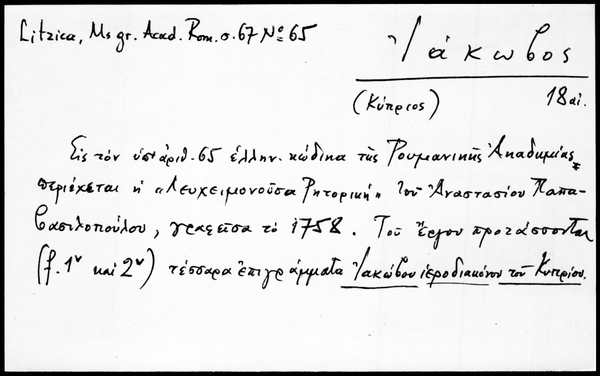 Litzica, Ms gr. Acad. Rom. σ. 67 Nº 65
Ἰάκωβος
(Κύπριος) 18 αἰ.
Εἰς τὸν ὑπ' ἀριθ. 65 ἑλλην. κώδικα τῆς Ρουμανικῆς Ἀκαδημίας
περιέχεται ἡ «Λευχειμονοῦσα Ρητορική» τοῦ Ἀναστασίου Παπα-
βασιλοπούλου, γραφεῖσα τὸ 1758. Τοῦ ἔργου προτάσσονται
(f. 1ᵛ καὶ 2ᵛ) τέσσαρα ἐπιγράμματα Ἰακώβου ἱεροδιακόνου τοῦ Κυπρίου.